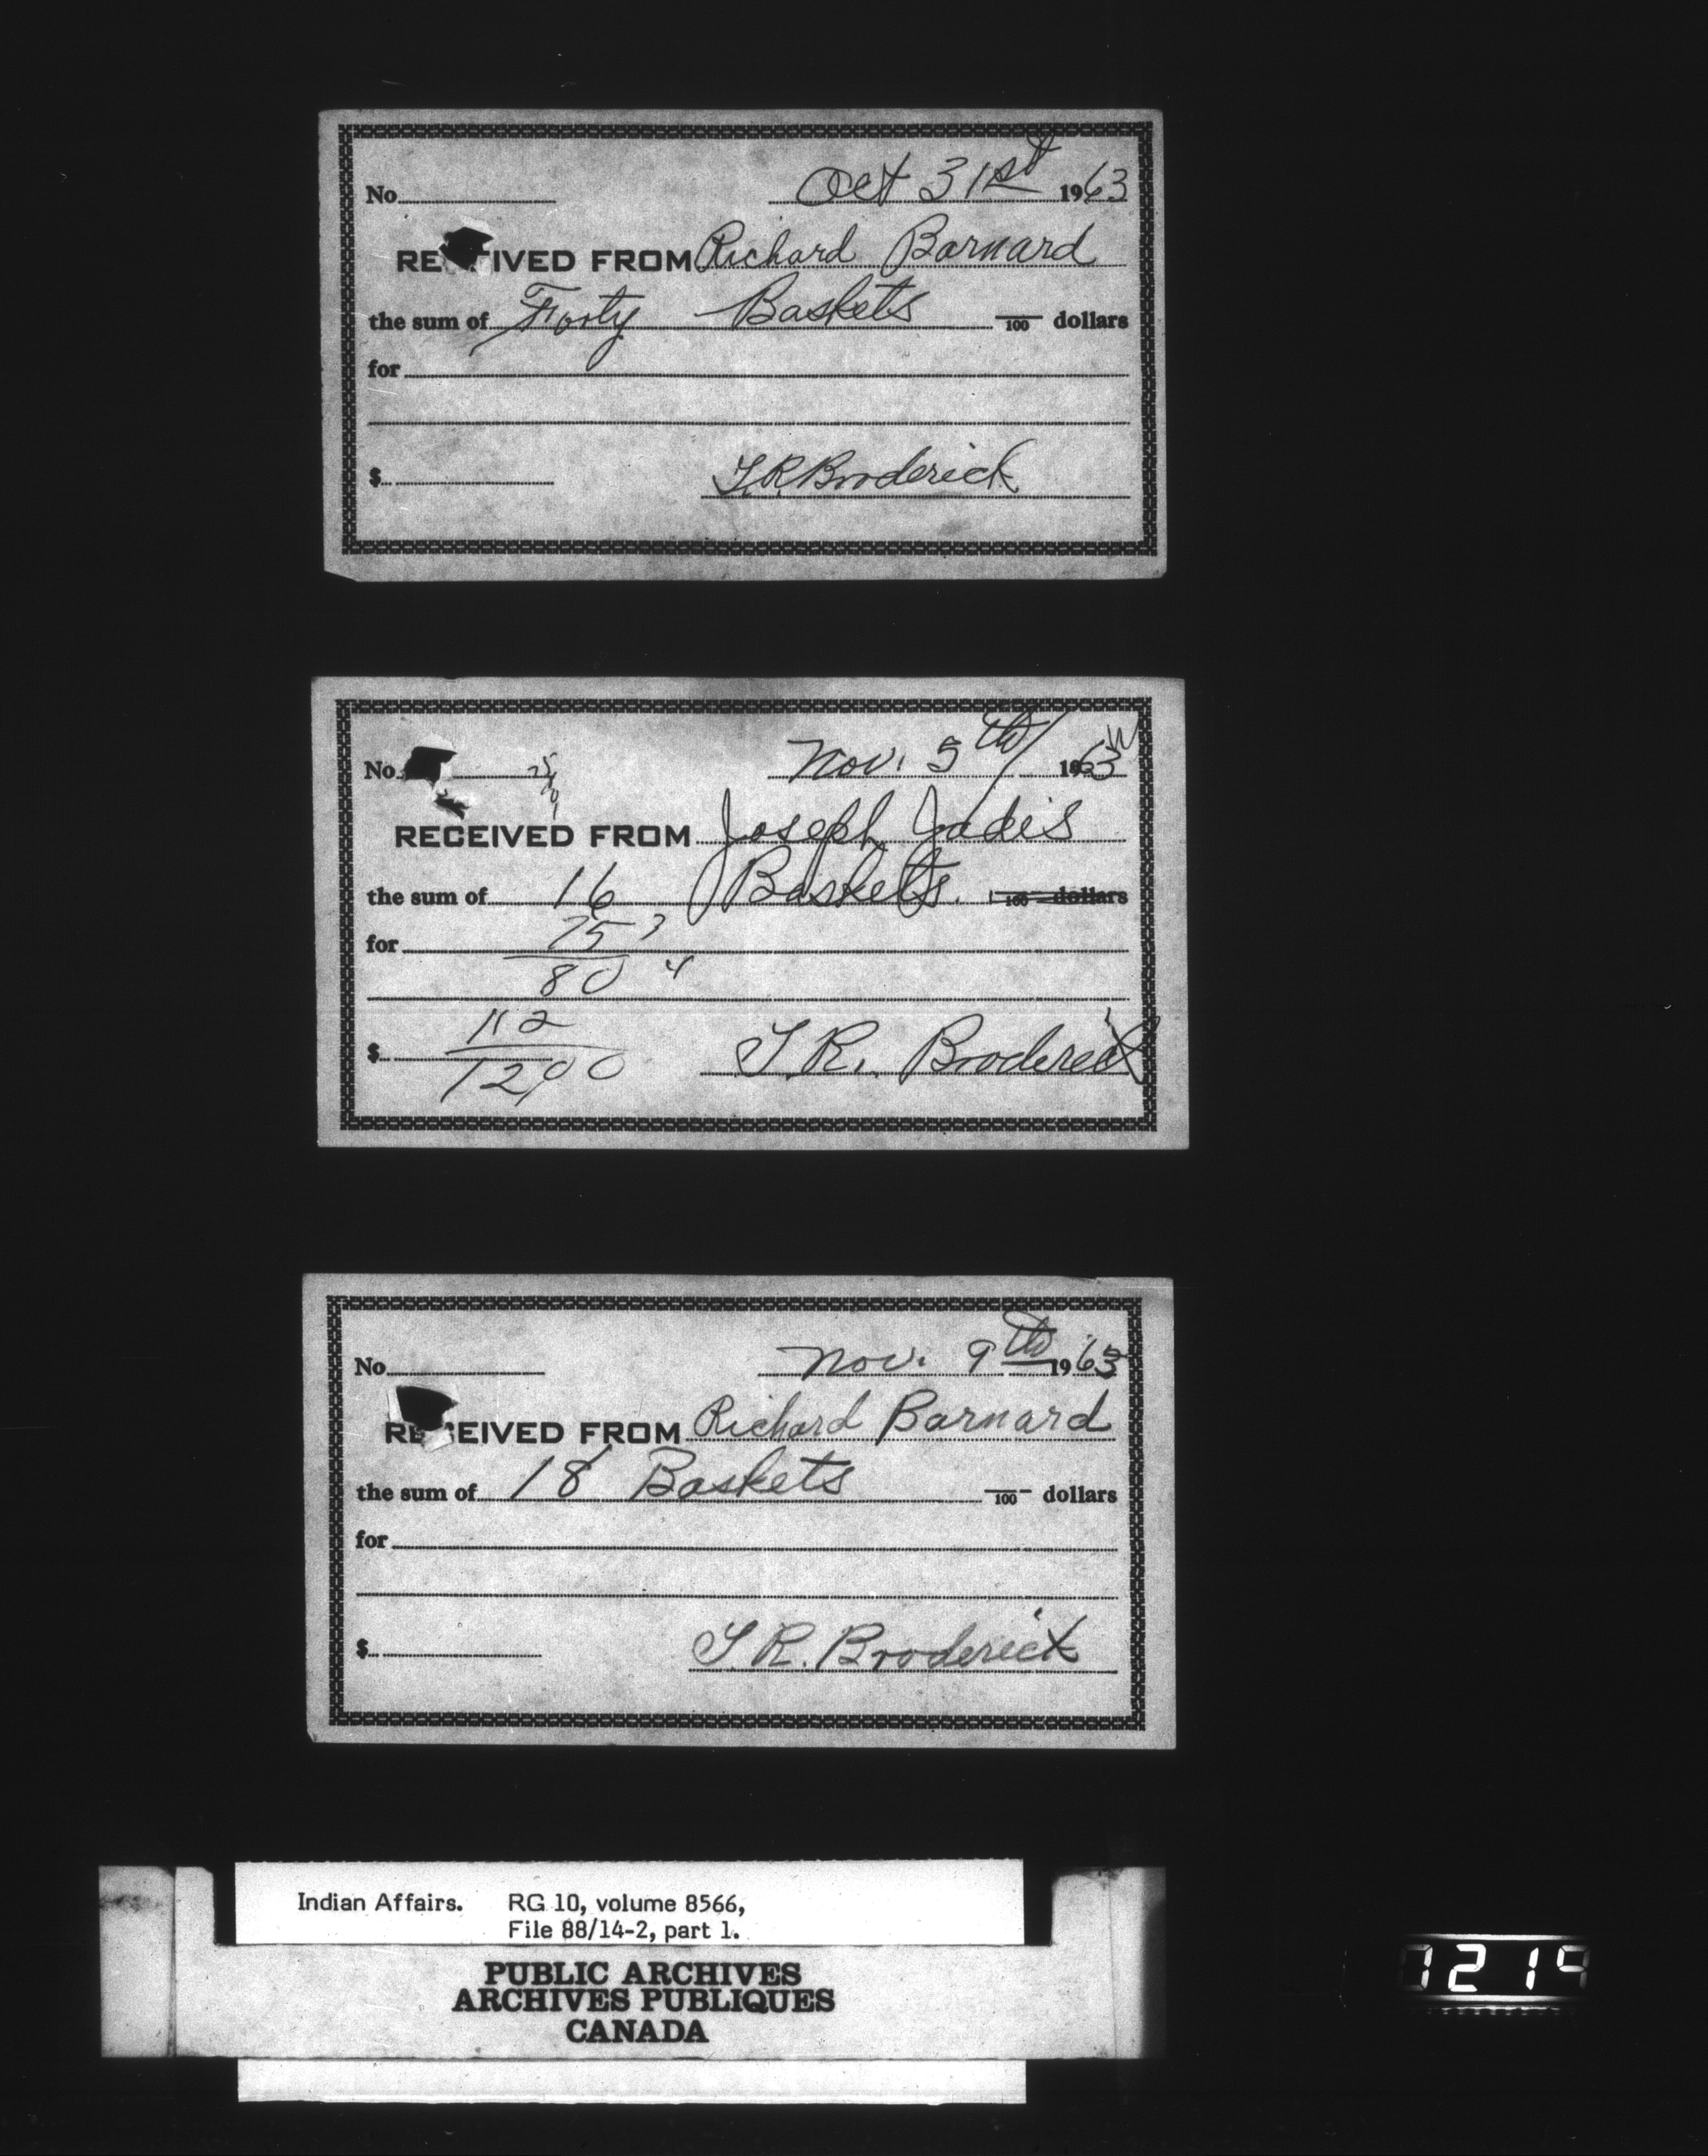 No. Oct 31st 1963
RECEIVED FROM Richard Barnard
the sum of Forty Baskets /100 dollars
for
$ T.R. Broderick
No. Nov. 5th/ 1963
RECEIVED FROM Joseph Jadis
the sum of 16 Baskets. /100 dollars
for 75 3
80 4
112
$ 12,00 T.R. Broderick
No. Nov. 9th 1963
RECEIVED FROM Richard Barnard
the sum of 18 Baskets /100 dollars
for
$ T.R. Broderick
Indian Affairs. RG 10, volume 8566,
File 88/14-2, part 1.
PUBLIC ARCHIVES
ARCHIVES PUBLIQUES
CANADA